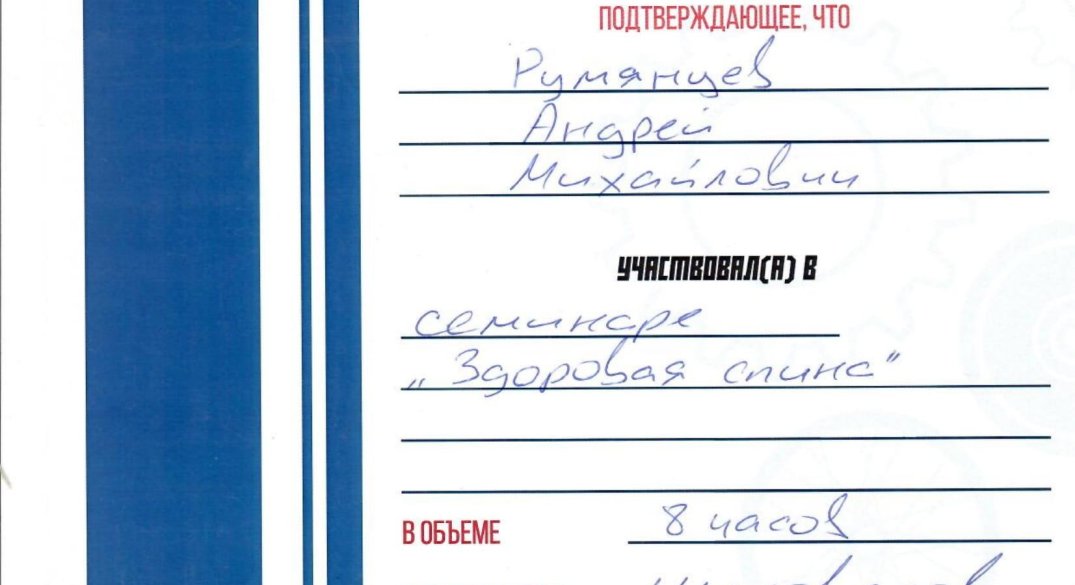 ПОДТВЕРЖДАЮЩЕЕ, ЧТО
Румянцев
Андрей
Михайлович
УЧАСТВОВАЛ(А) В
семинаре
„Здоровая спина"
В ОБЪЕМЕ 8 часов